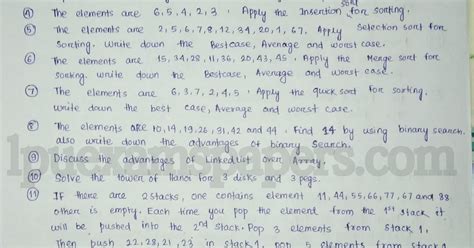 ④ The elements are 6,5,4,2,3. Apply the Insertion sort for sorting.
⑤ The elements are 2,5,6,7,8,12,34,20,1,67. Apply Selection sort for
Sorting. Write down the Bestcase, Average and worst case.
⑥ The elements are 15,34,28,11,36,20,43,45. Apply the Merge sort for
sorting. write down the Bestcase, Average and worst case.
⑦ The elements are 6,3,7,2,4,5. Apply the quick sort for sorting.
write down the best case, Average and worst case.
⑧ The elements are 10,14,19,26,31,42 and 44. Find 14 by using binary search.
also write down the advantages of binary Search.
⑨ Discuss the advantages of Linkedlist over Array.
⑩ Solve the tower of Hanoi for 3 disks and 3 pegs.
⑪ If there are 2 stacks, one contains element 11,44,55,66,77,67 and 88
other is empty. Each time you pop the element from the 1st stack it
will be pushed into the 2nd stack. Pop 3 elements from stack 1,
Then push 22,28,21,23 in stack 1, pop 5 elements from